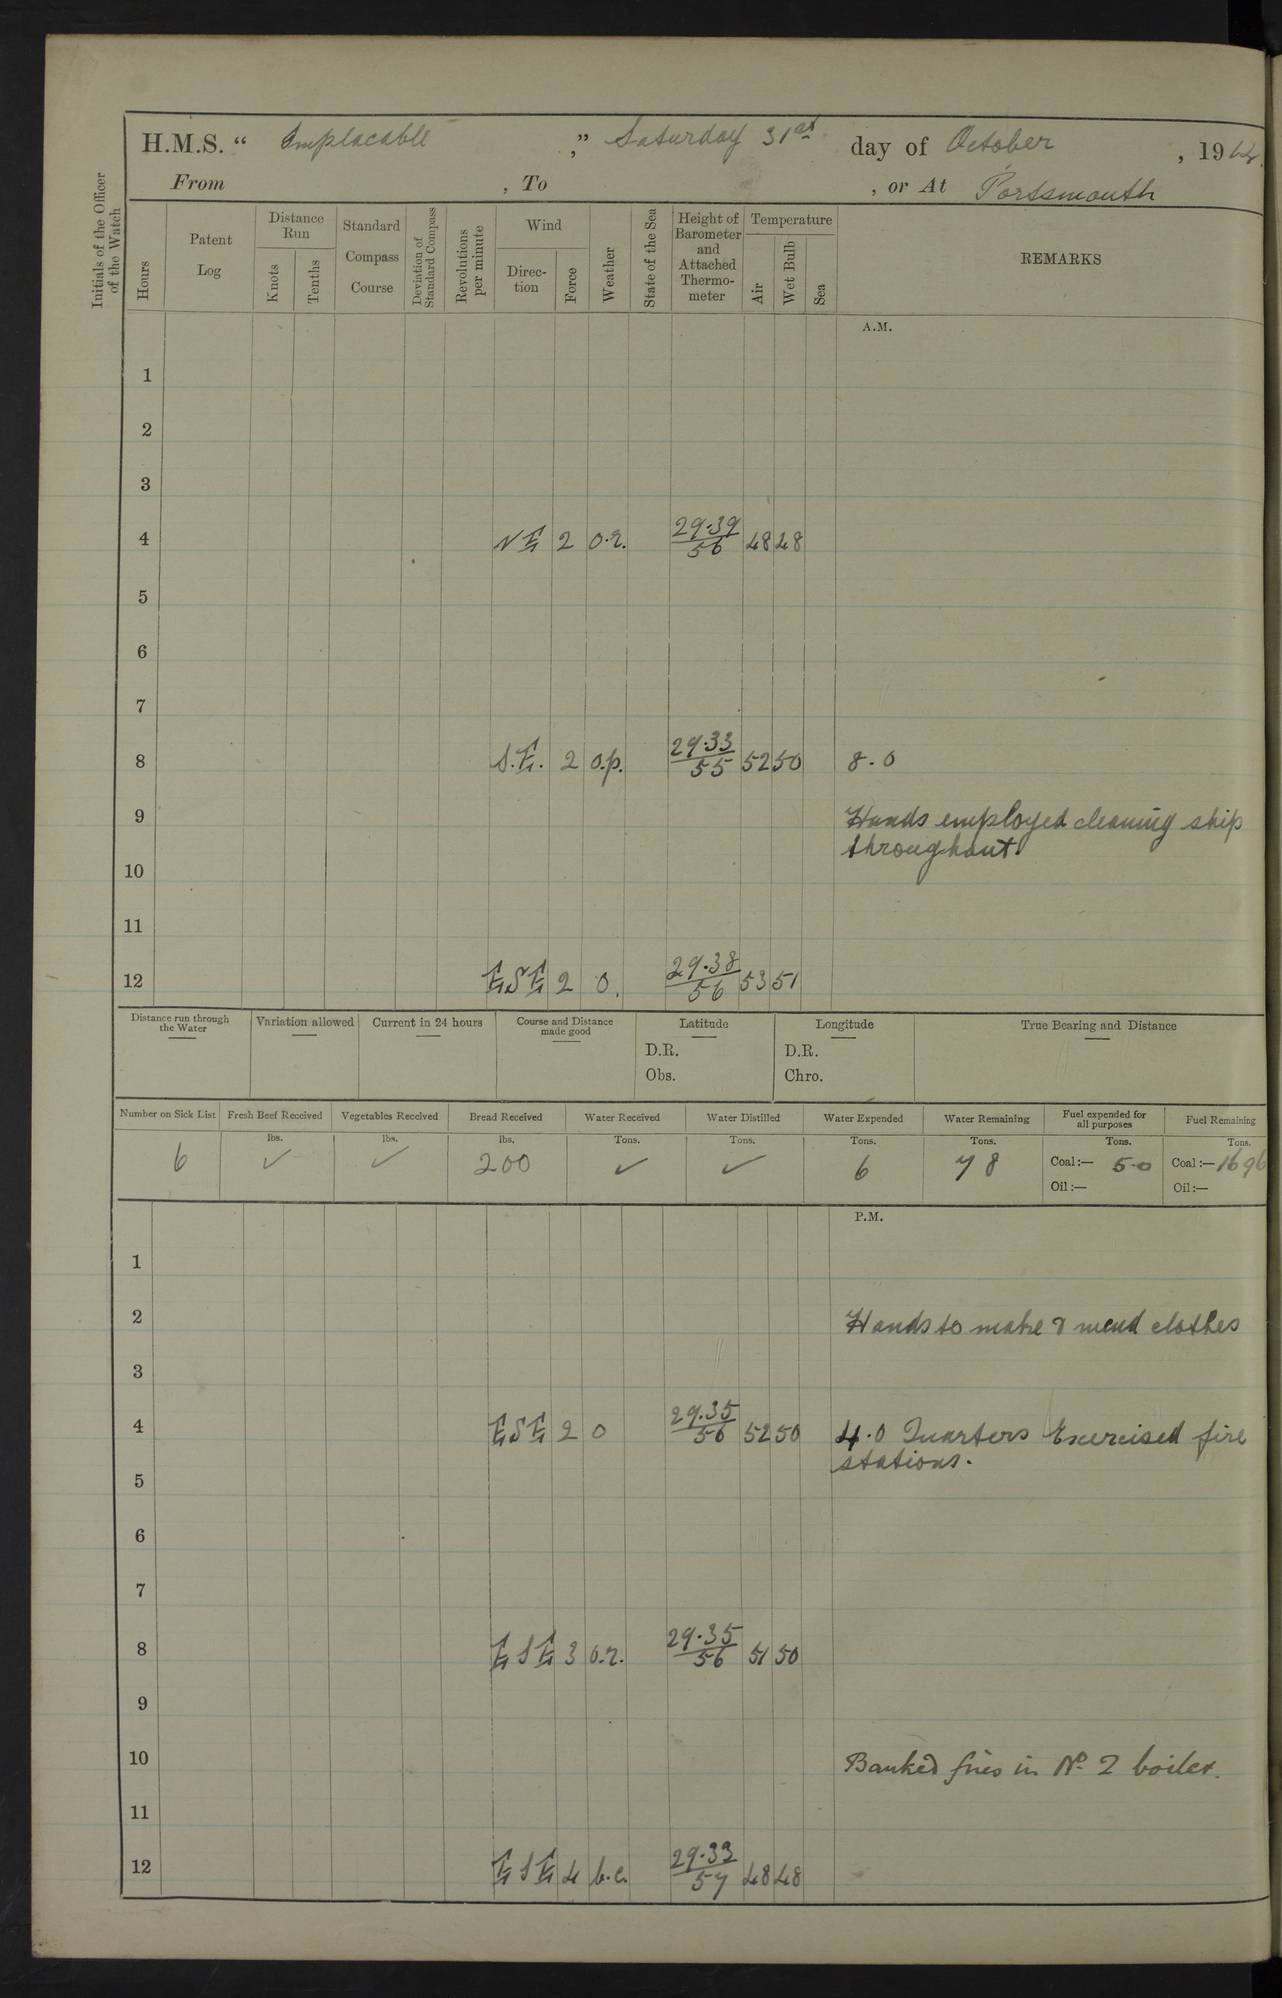 H.M.S. “ Implacable ,” Saturday 31st day of October , 1914.
From , To , or At Portsmouth
Initials of the Officer of the Watch
Hours
Patent Log
Distance Run
Knots
Tenths
Standard Compass Course
Deviation of Standard Compass
Revolutions per minute
Wind
Direc-tion
Force
Weather
State of the Sea
Height of Barometer and Attached Thermo-meter
Temperature
Air
Wet Bulb
Sea
REMARKS
A.M.
1
2
3
4 NE 2 o.r. 29.39/56 48 48
5
6
7
8 S.E. 2 o.p. 29.33/55 52 50 8.0
9 Hands employed cleaning ship
throughout.
10
11
12 ESE 2 o. 29.38/56 53 51
Distance run through the Water
Variation allowed
Current in 24 hours
Course and Distance made good
Latitude
D.R.
Obs.
Longitude
D.R.
Chro.
True Bearing and Distance
Number on Sick List
Fresh Beef Received
Vegetables Received
Bread Received
Water Received
Water Distilled
Water Expended
Water Remaining
Fuel expended for all purposes
Fuel Remaining
lbs. lbs. lbs. Tons. Tons. Tons. Tons. Tons. Tons.
6 ✓ ✓ 200 ✓ ✓ 6 78 Coal:— 50 Coal:— 1696
Oil:— Oil:—
P.M.
1
2 Hands to make & mend clothes
3
4 ESE 2 o 29.35/56 52 50 4.0 Quarters Exercised fire
stations.
5
6
7
8 ESE 3 o.r. 29.35/56 51 50
9
10 Banked fires in No 2 boiler.
11
12 ESE 4 b.c. 29.33/57 48 48